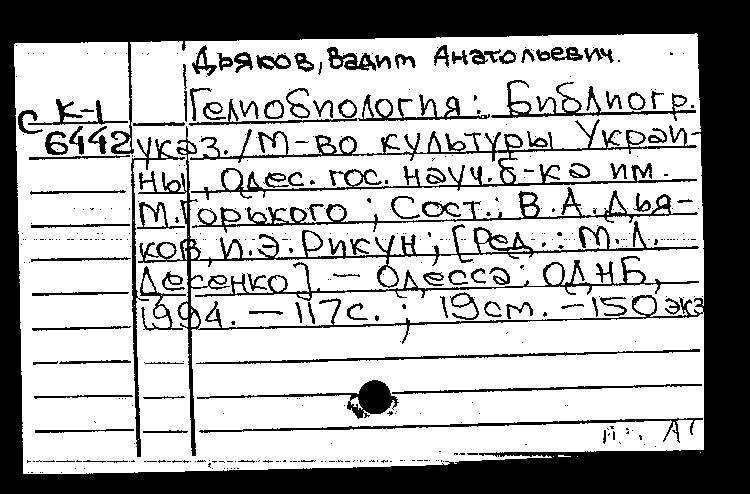 Дьяков, Вадим Анатольевич.
Гелиобиология: Библиогр.
С К-1
6442
указ. / М-во культуры Украи-
ны, Одес. гос. науч. б-ка им.
М. Горького; Сост.: В.А. Дья-
ков, И.Э. Рикун; [Ред.: М.Л.
Десенко]. — Одесса: ОДНБ,
1994. — 117с.; 19 ст. — 150 экз